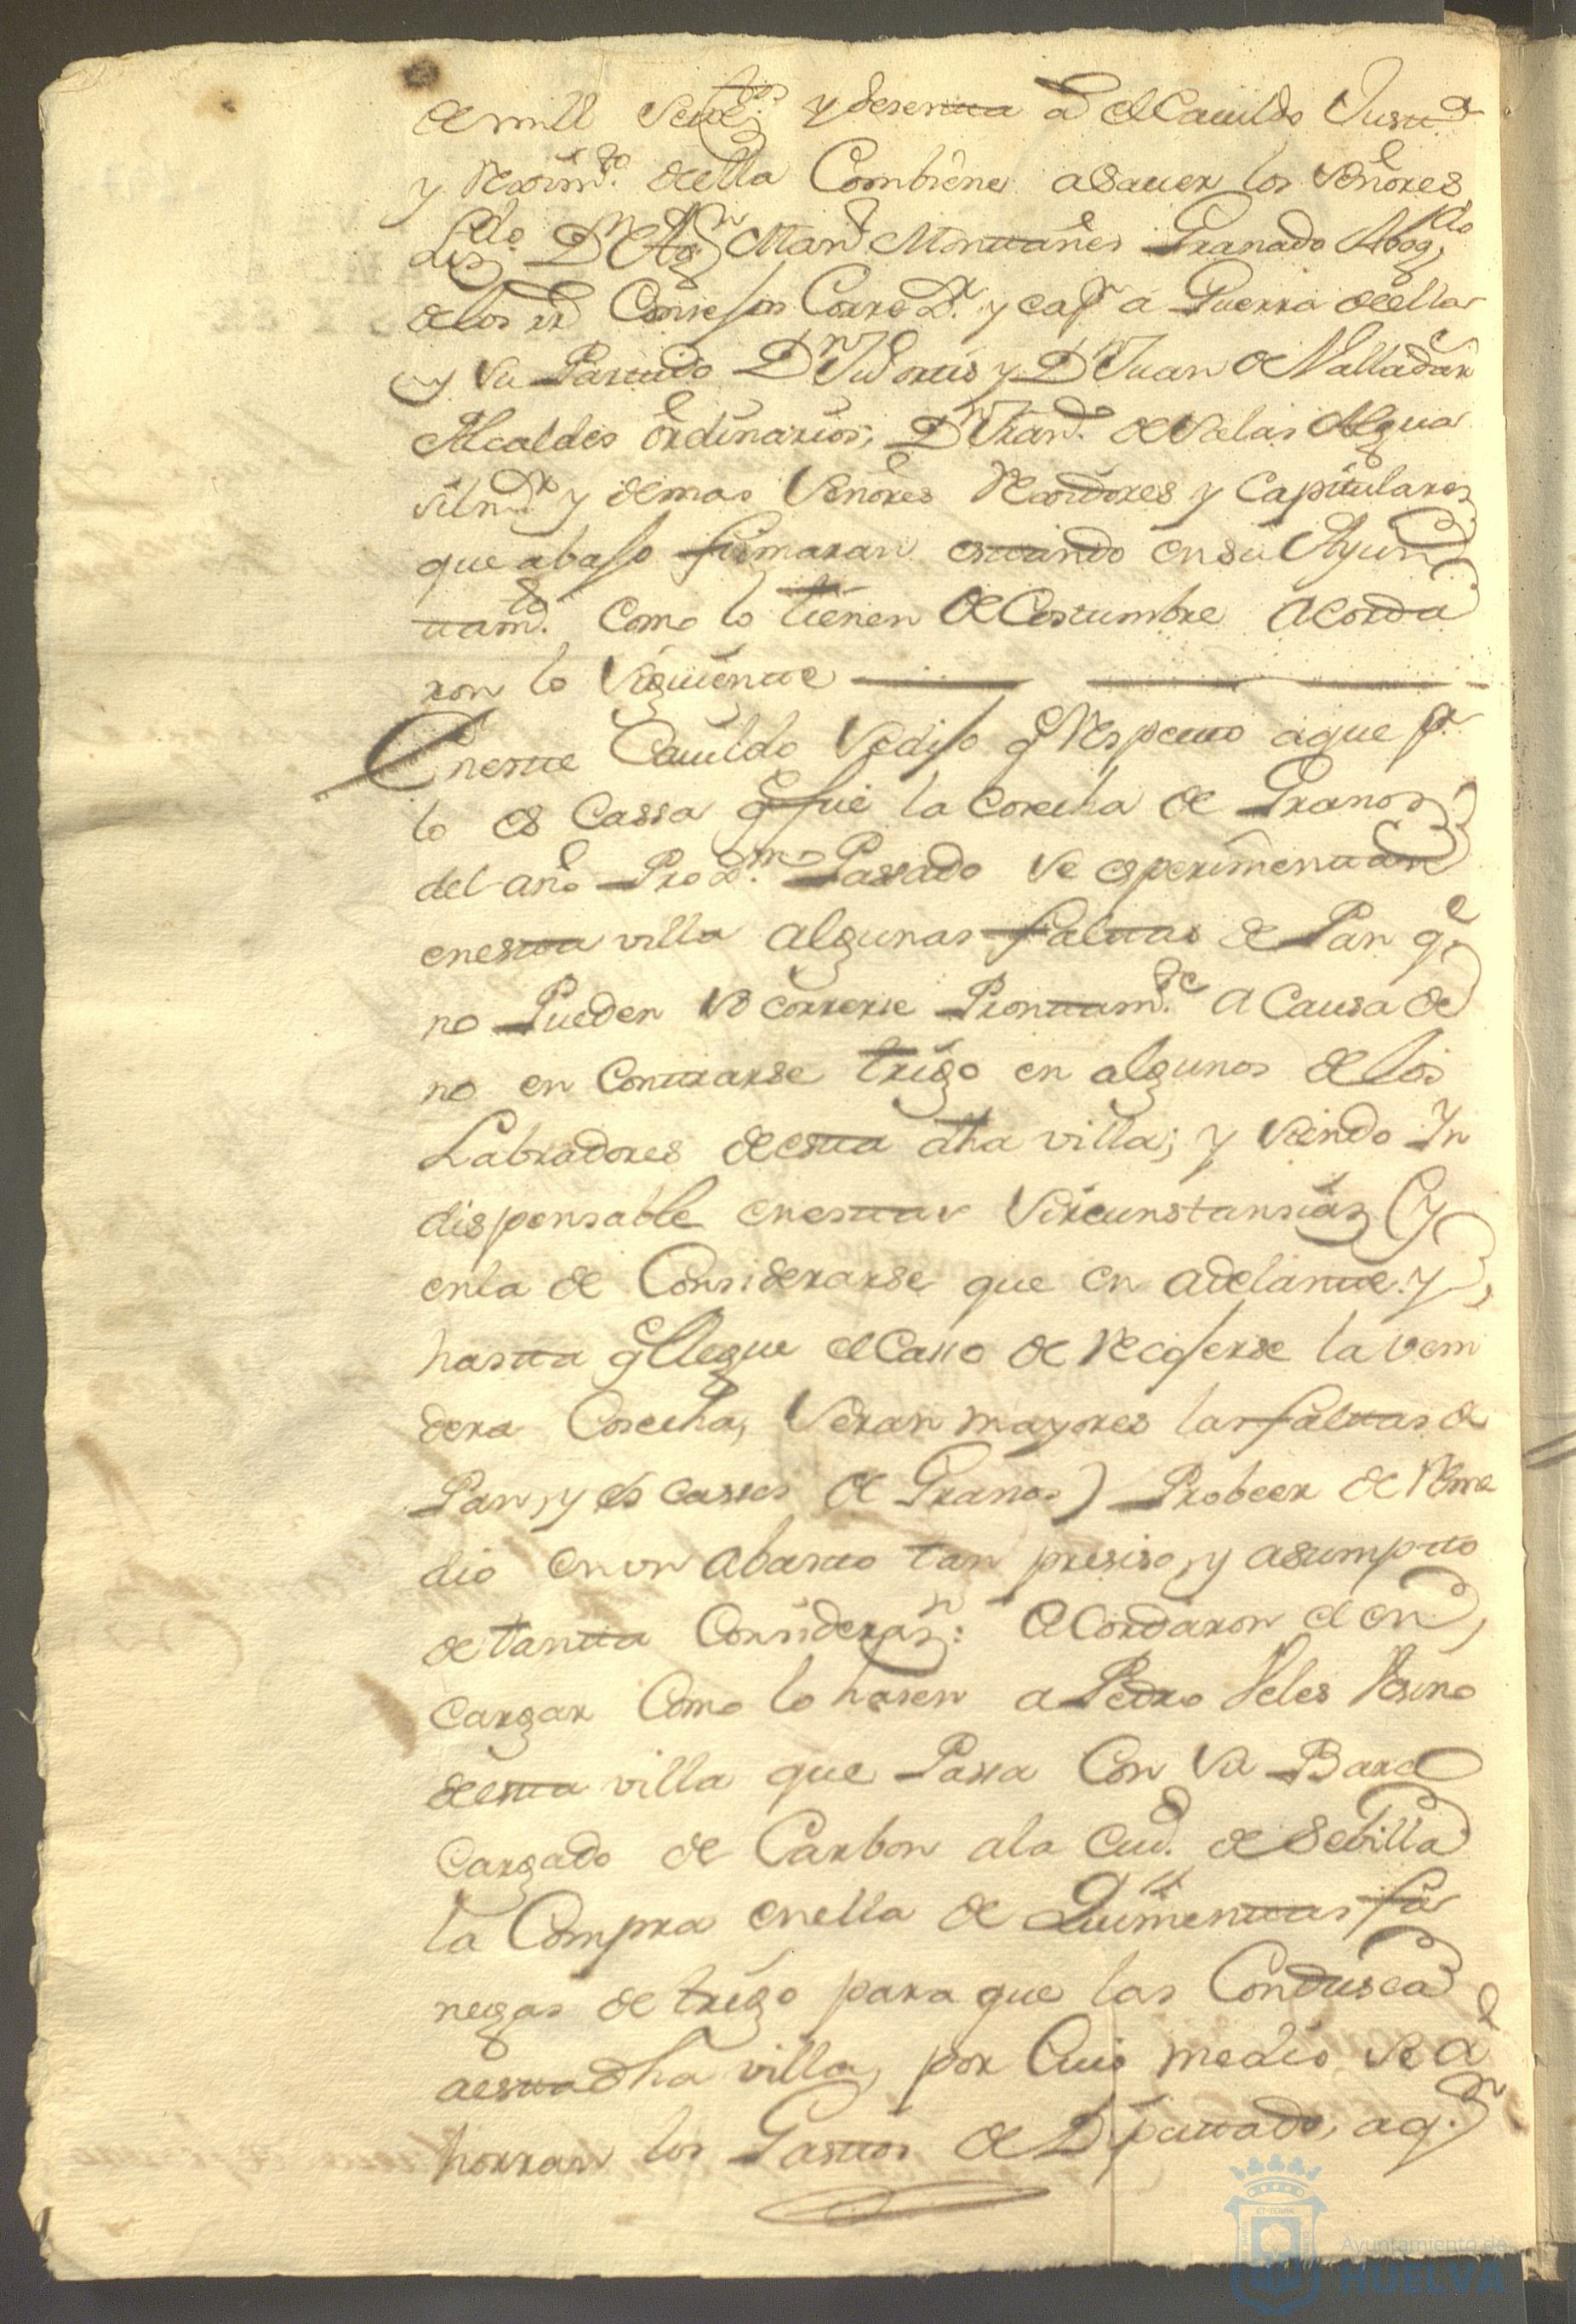 de mill setez.tos y sesenta a el Cauildo Justt.a
y Reximi.to de ella Combiene a Sauer los Señores
Liz.do D.n Ag.n Man.l Montañes Granado Abog.do
de los R.s Consejos Corre.or y cap.n a Guerra de ella
y su Partido D.n Ju.o ortis y D.n Juan de
Alcaldes ordinarios, D.n Fran.co de Salas Algua
sil m.r y demas Señores Rexidores y Capitulares
que abajo firmaran estando en su Ayun
tam.to Como lo tienen de Costumbre Acorda
ron lo siguiente
En este Cauildo se dijo q.e Respecto a que p.r
lo es Cassa q.e fue la Cosecha de Granos
del año Prox.mo Passado se esperimentan
en esta villa algunas faltas de Pan q.e
no Pueden socorrerse Prontam.te a Causa de
no en Contrarse trigo en algunos de los
Labradores de esta dha villa; y siendo In
dispensable en estas sircunstansias (y
en la de Considerarse que en adelante y
hasta q.e llegue el Casso de Recojerse la vem
dera Cosecha, seran mayores las faltas de
Pan, y es casses de Granos) Probeer de Reme
dio en vn abasto tan presiso, y asumpto
de tanta Considerás.n: Acordaron el en
cargar Como lo hasen a Pedro Veles Vesino
de esta villa que Passa Con su Barco
Cargado de Carbon a la Ciud.d de Sebilla
la Compra en ella de Quinientas fa
negas de trigo para que las Condusca
a esta dha villa, por Cuio medio se a
horran los Gastos de Diputado, a q.n
Ayuntamiento de
HUELVA